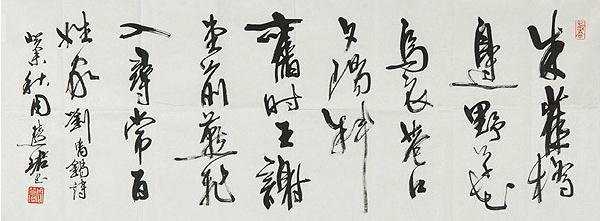 朱雀橋
邊野草花
烏衣巷口
夕陽斜
舊時王謝
堂前燕飛
入尋常百
姓家 劉禹錫詩
秋周